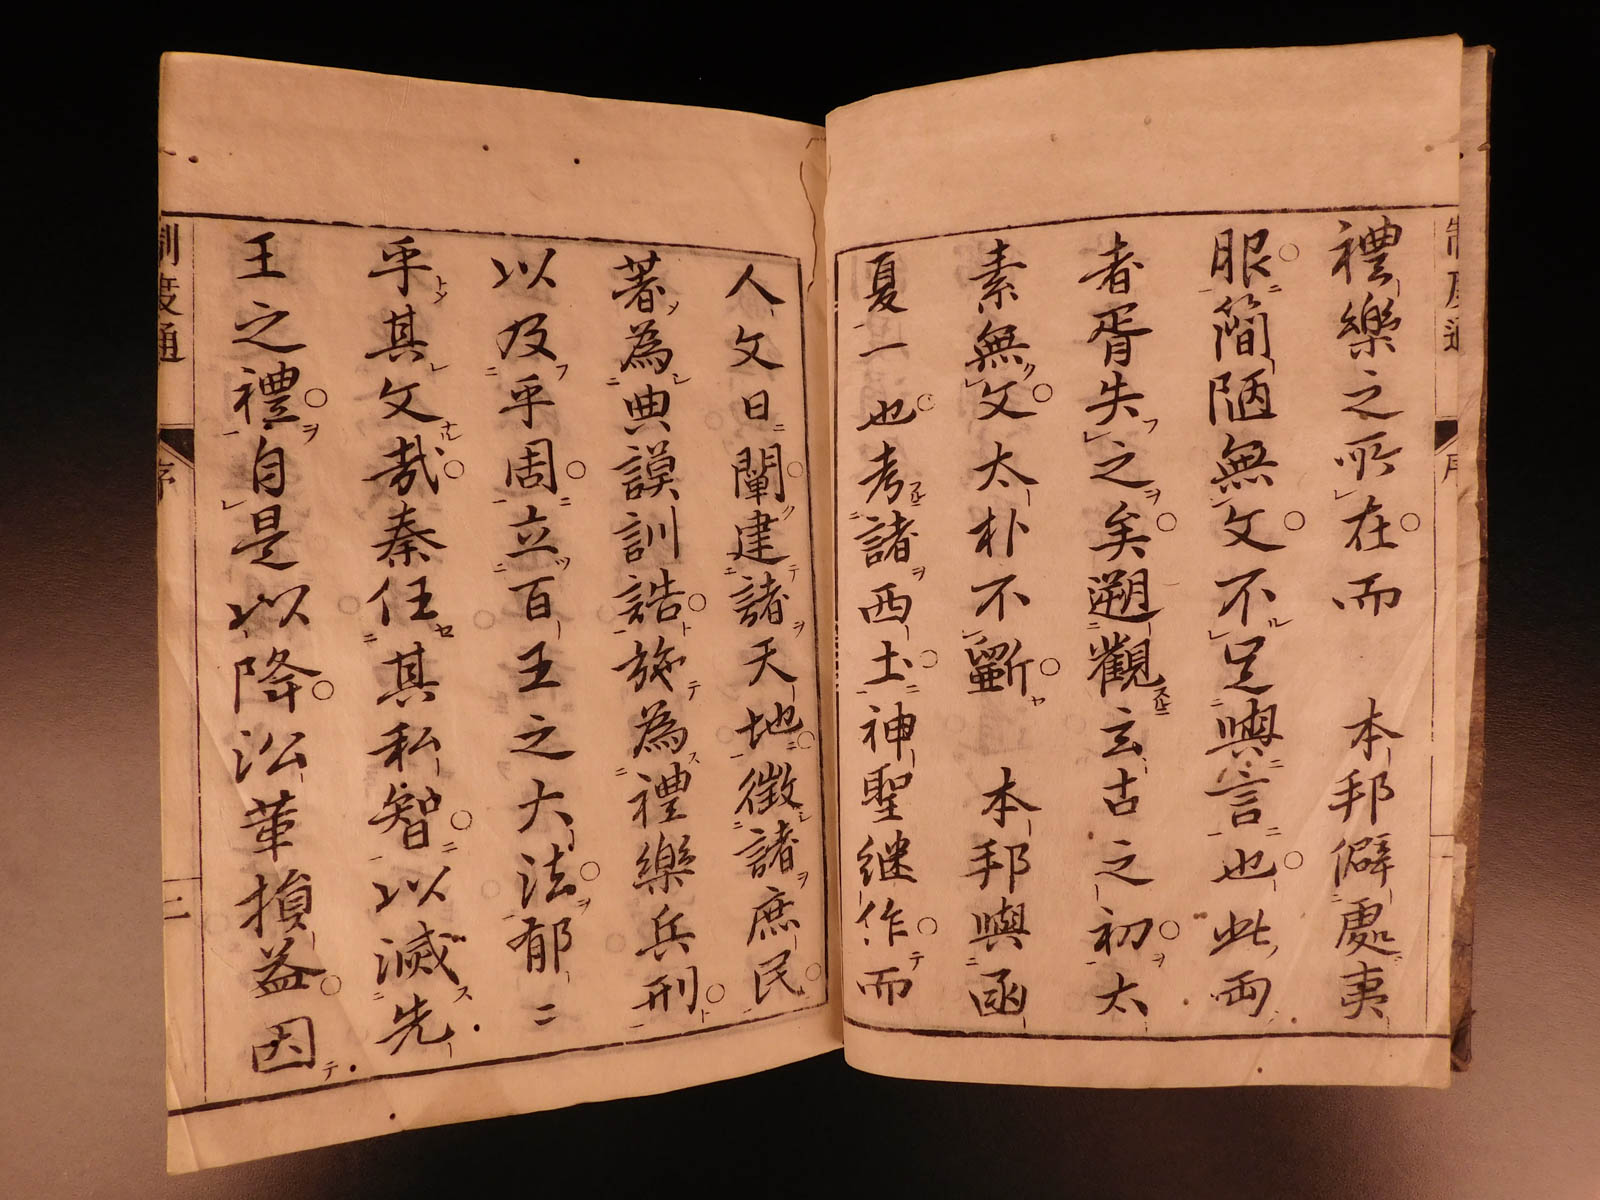 禮樂之所在而　本邦僻處夷
服簡陋無文不足與言也此両
者胥失之矣遡觀玄古之初太
素無文太朴不斲　本邦與函
夏一也考諸西土神聖継作而
人文日闡建諸天地徴諸庶民
著為典謨訓誥施為禮樂兵刑
以及乎周立百王之大法郁〻
乎其文哉秦任其私智以滅先
王之禮自是以降沿革損益因
制度通
序
二